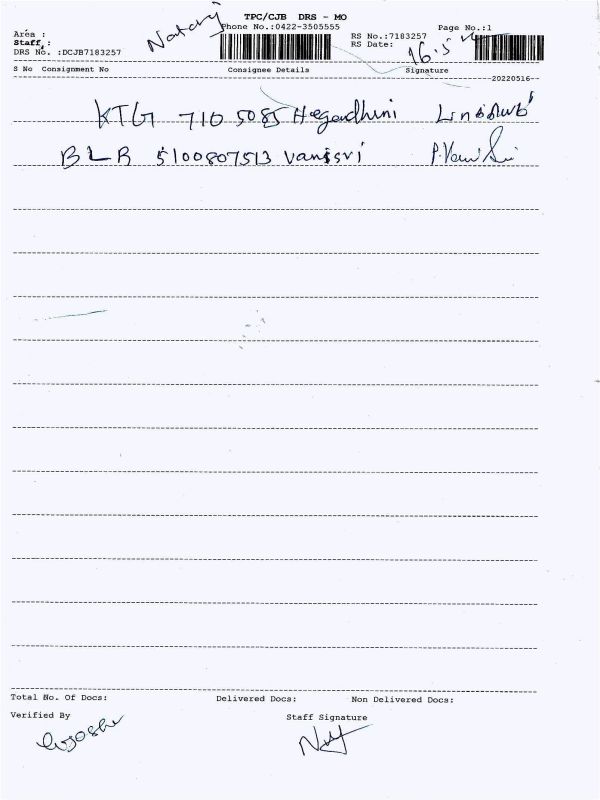 TPC/CJB DRS - MO
Nataraj
Phone No.:0422-3505555
Page No.:1
Area :
RS No.:7183257
Staff :
RS Date: 16.5
DRS No. :DCJB7183257
S No Consignment No Consignee Details Signature
20220516
KTG 710 5085
BLR 5100807513 vanisri P.Vani Sri
Total No. Of Docs: Delivered Docs: Non Delivered Docs:
Verified By Staff Signature